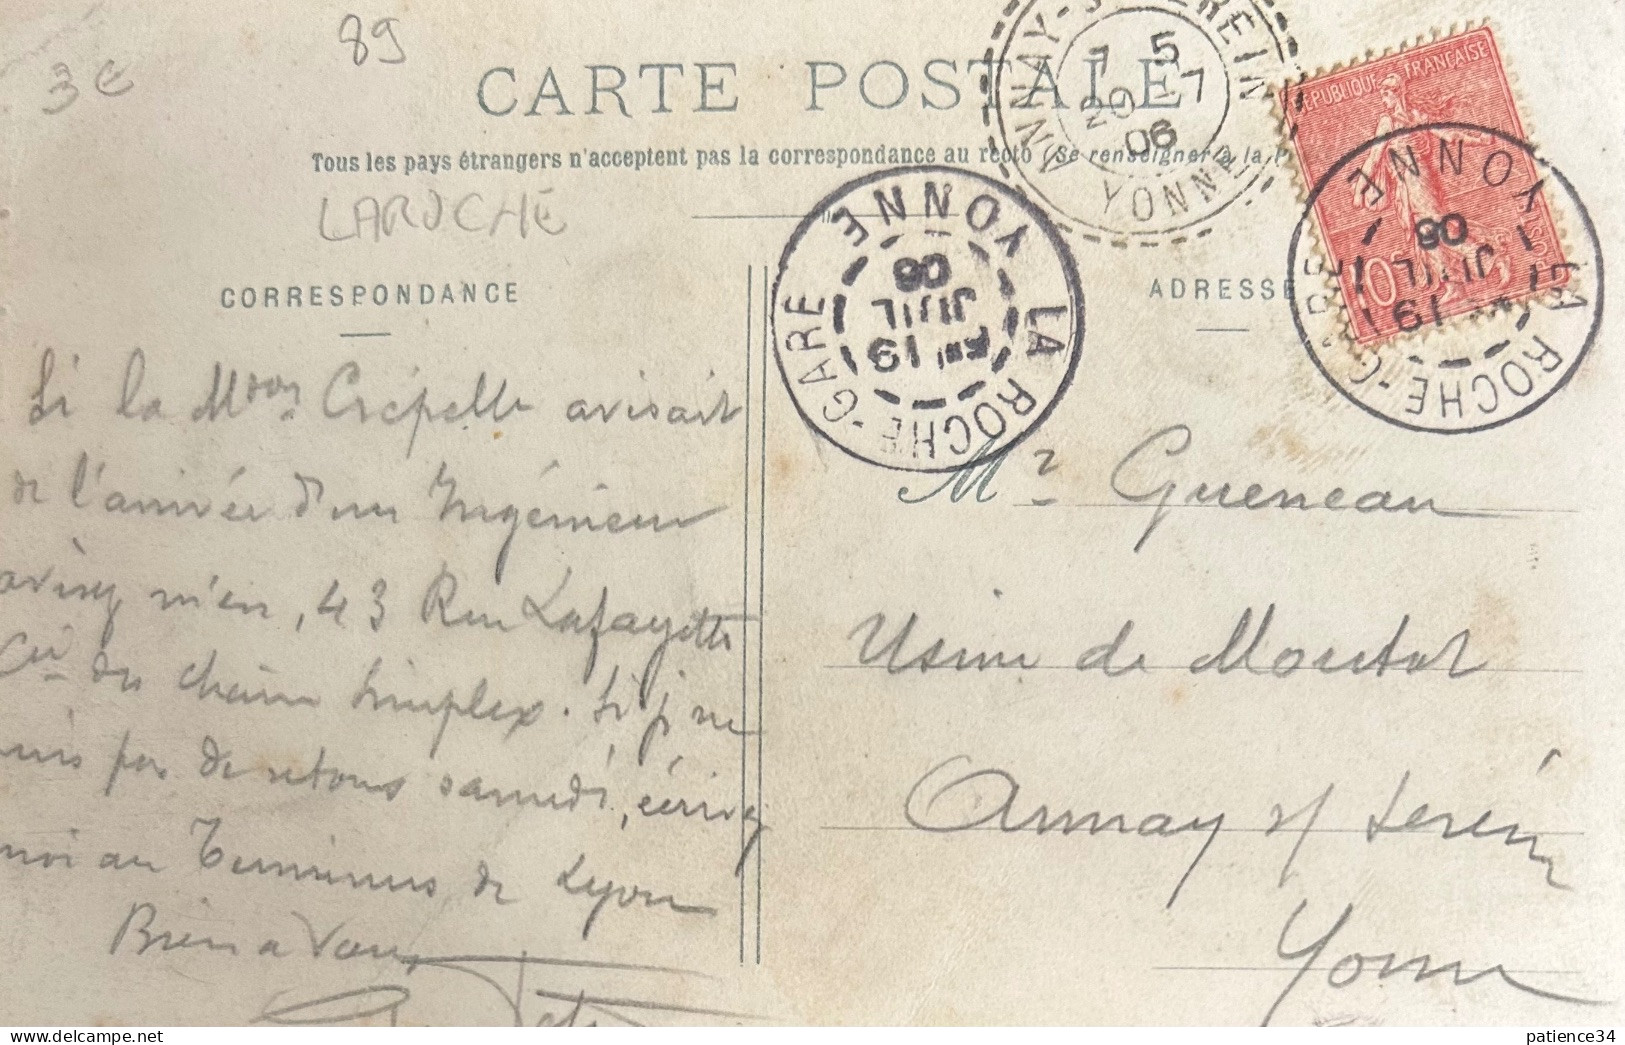 3€
89
CARTE POSTALE
Tous les pays étrangers n'acceptent pas la correspondance au recto (Se renseigner à la P
LAROCHE
YONNE
7 5
20 -7
06
LA ROCHE-GARE
YONNE
19
JUIL
06
RÉPUBLIQUE FRANÇAISE
10
LA ROCHE-GARE
YONNE
19
JUIL
06
CORRESPONDANCE
ADRESSE
Si la Mson Crépelle avisait
de l'arrivée d'un Ingénieur
avisez m'en, 43 Rue Lafayette
Cie des chaines Simplex. Si je ne
suis pas de retour samedi, écrivez
moi au Terminus de Lyon
Bien a vous
Mr Gueneau
Usine de Moutot
Annay s/ Serein
Yonne
patience34